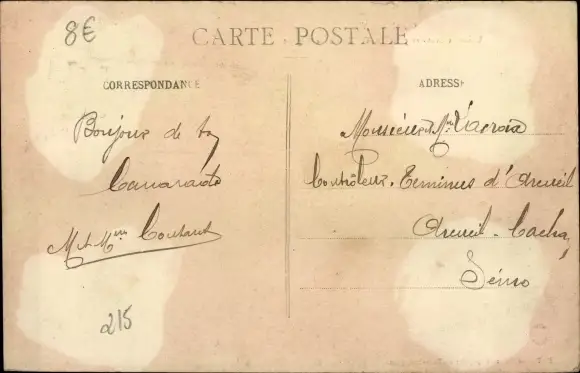 8€
CARTE POSTALE
CORRESPONDANCE
ADRESSE
Bonjour de ta
Camarade
M et Mme Coutant
215
Monsieur et Mme Lacroix
Contrôleur. Terminus d'Arcueil
Arcueil-Cachan
Seine